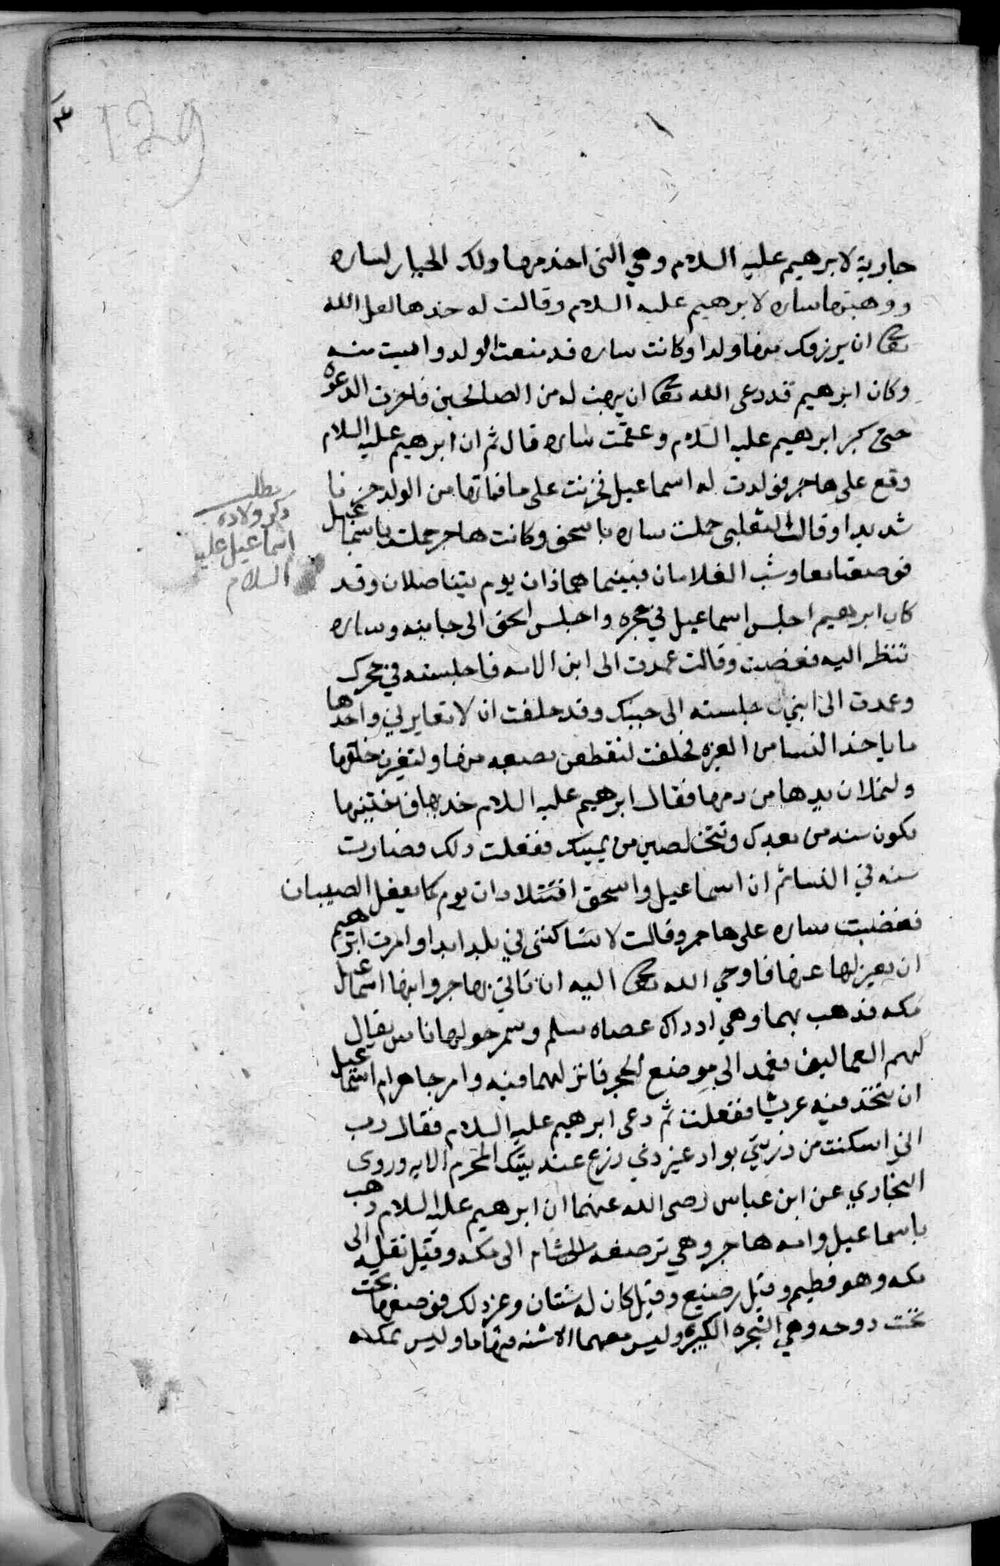 129
جارية لابرهيم عليه السلام وهي التى اخذ منها ولك الجبار لساره
ووهبتها ساره لابرهيم عليه السلام وقالت له خذها لعل الله
تعالى ان يرزقك منها ولدا وكانت ساره قد منعت الولد وايست منه
وكان ابرهيم قد دعى الله تعالى ان يهب له من الصالحين فاخرت الدعوة
حتى كبر ابرهيم عليه السلام وعقمت ساره قال ثم ان ابرهيم عليه السلام
وقع على هاجر فولدت له اسماعيل فحزنت على ما فاتها من الولد حزنا
شديدا وقالت لتقلبى حملت ساره باسحق وكانت هاجر حملت باسماعيل
فوضعتا معا وشب الغلامان فبينما هما ذات يوم يتناضلان وقد
كان ابرهيم اجلس اسماعيل في حجره واجلس اسحق الى جانبه وساره
تنظر اليه فغضبت وقالت عمدت الى ابن الامه فاجلسته في حجرك
وعمدت الى ابني فاجلسته الى جنبك وقد حلفت ان لا تغايرني واخذها
ما ياخذ النسا من الغيره فحلفت لتقطعن بضعه منها ولتغيرن خلقها
ولتملان يدها من دمها فقال ابرهيم عليه السلام خذيها فاختنيها
تكون سنه من بعدك وتتخلصين من يمينك ففعلت ذلك فصارت
سنه في النسا ثم ان اسماعيل واسحق اقتتلا ذات يوم كما يفعل الصبيان
فغضبت ساره على هاجر وقالت لا تساكننى في بلد ابدا وامرت ابرهيم
ان يعزلها عنها فاوحى الله تعالى اليه ان تاتي بهاجر وابنها اسماعيل
مكه فذهب بهما وهي اذ ذاك عضاه سلم وسمر حولها ناس يقال
لهم العماليق فعمد الى موضع الحجر فانزلهما فيه وامر هاجر ام اسماعيل
ان تتخذ فيه عريشا ففعلت ثم دعى ابرهيم عليه السلام فقال رب
انى اسكنت من ذريتي بواد غير ذي زرع عند بيتك المحرم الايه وروى
البخاري عن ابن عباس رضى الله عنهما ان ابرهيم عليه السلام ذهب
باسماعيل وامه هاجر وهي ترضعه من الشام الى مكه وقيل نقله الى
مكه وهو فطيم وقيل رضيع وقيل كان له سنتان وغير ذلك فوضعهما تحت
تحت دوحه وهي الشجرة الكبيرة وليس معهما الا شنه فيها ما وليس بمكه
مطلب
ذكر ولادة
اسماعيل عليه
السلام